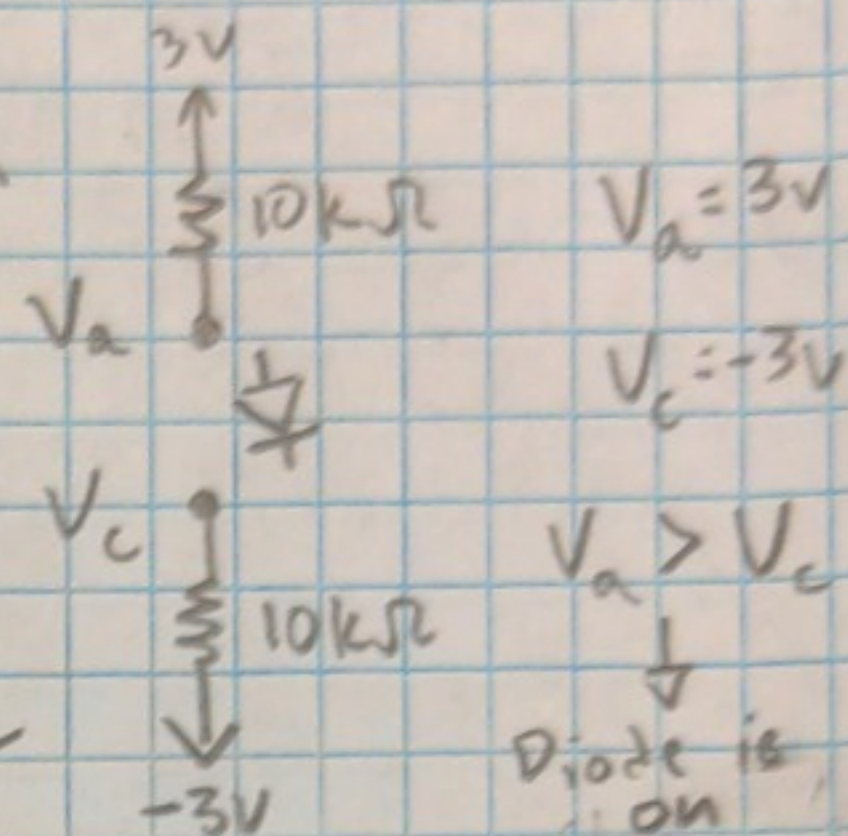 3V
10kΩ
Va
Vc
10kΩ
-3V
Va = 3V
Vc = -3V
Va > Vc
Diode is
on